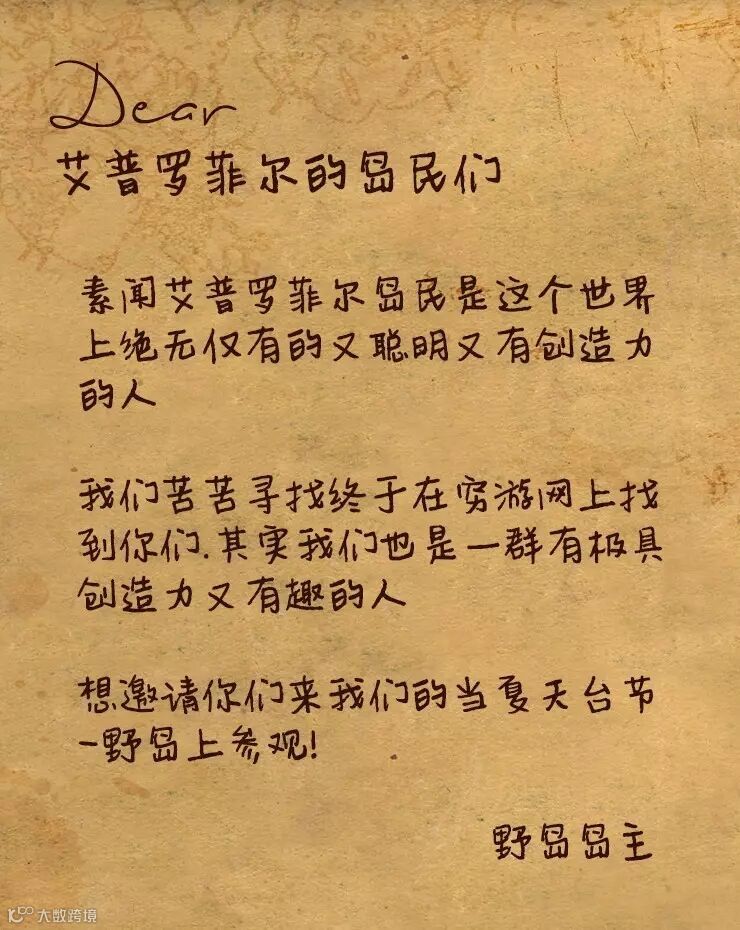 Dear
艾普罗菲尔的岛民们
素闻艾普罗菲尔岛民是这个世界
上绝无仅有的又聪明又有创造力
的人
我们苦苦寻找终于在穷游网上找
到你们.其实我们也是一群有极具
创造力又有趣的人
想邀请你们来我们的当夏天台节
-野岛上参观!
野岛岛主
大数跨境